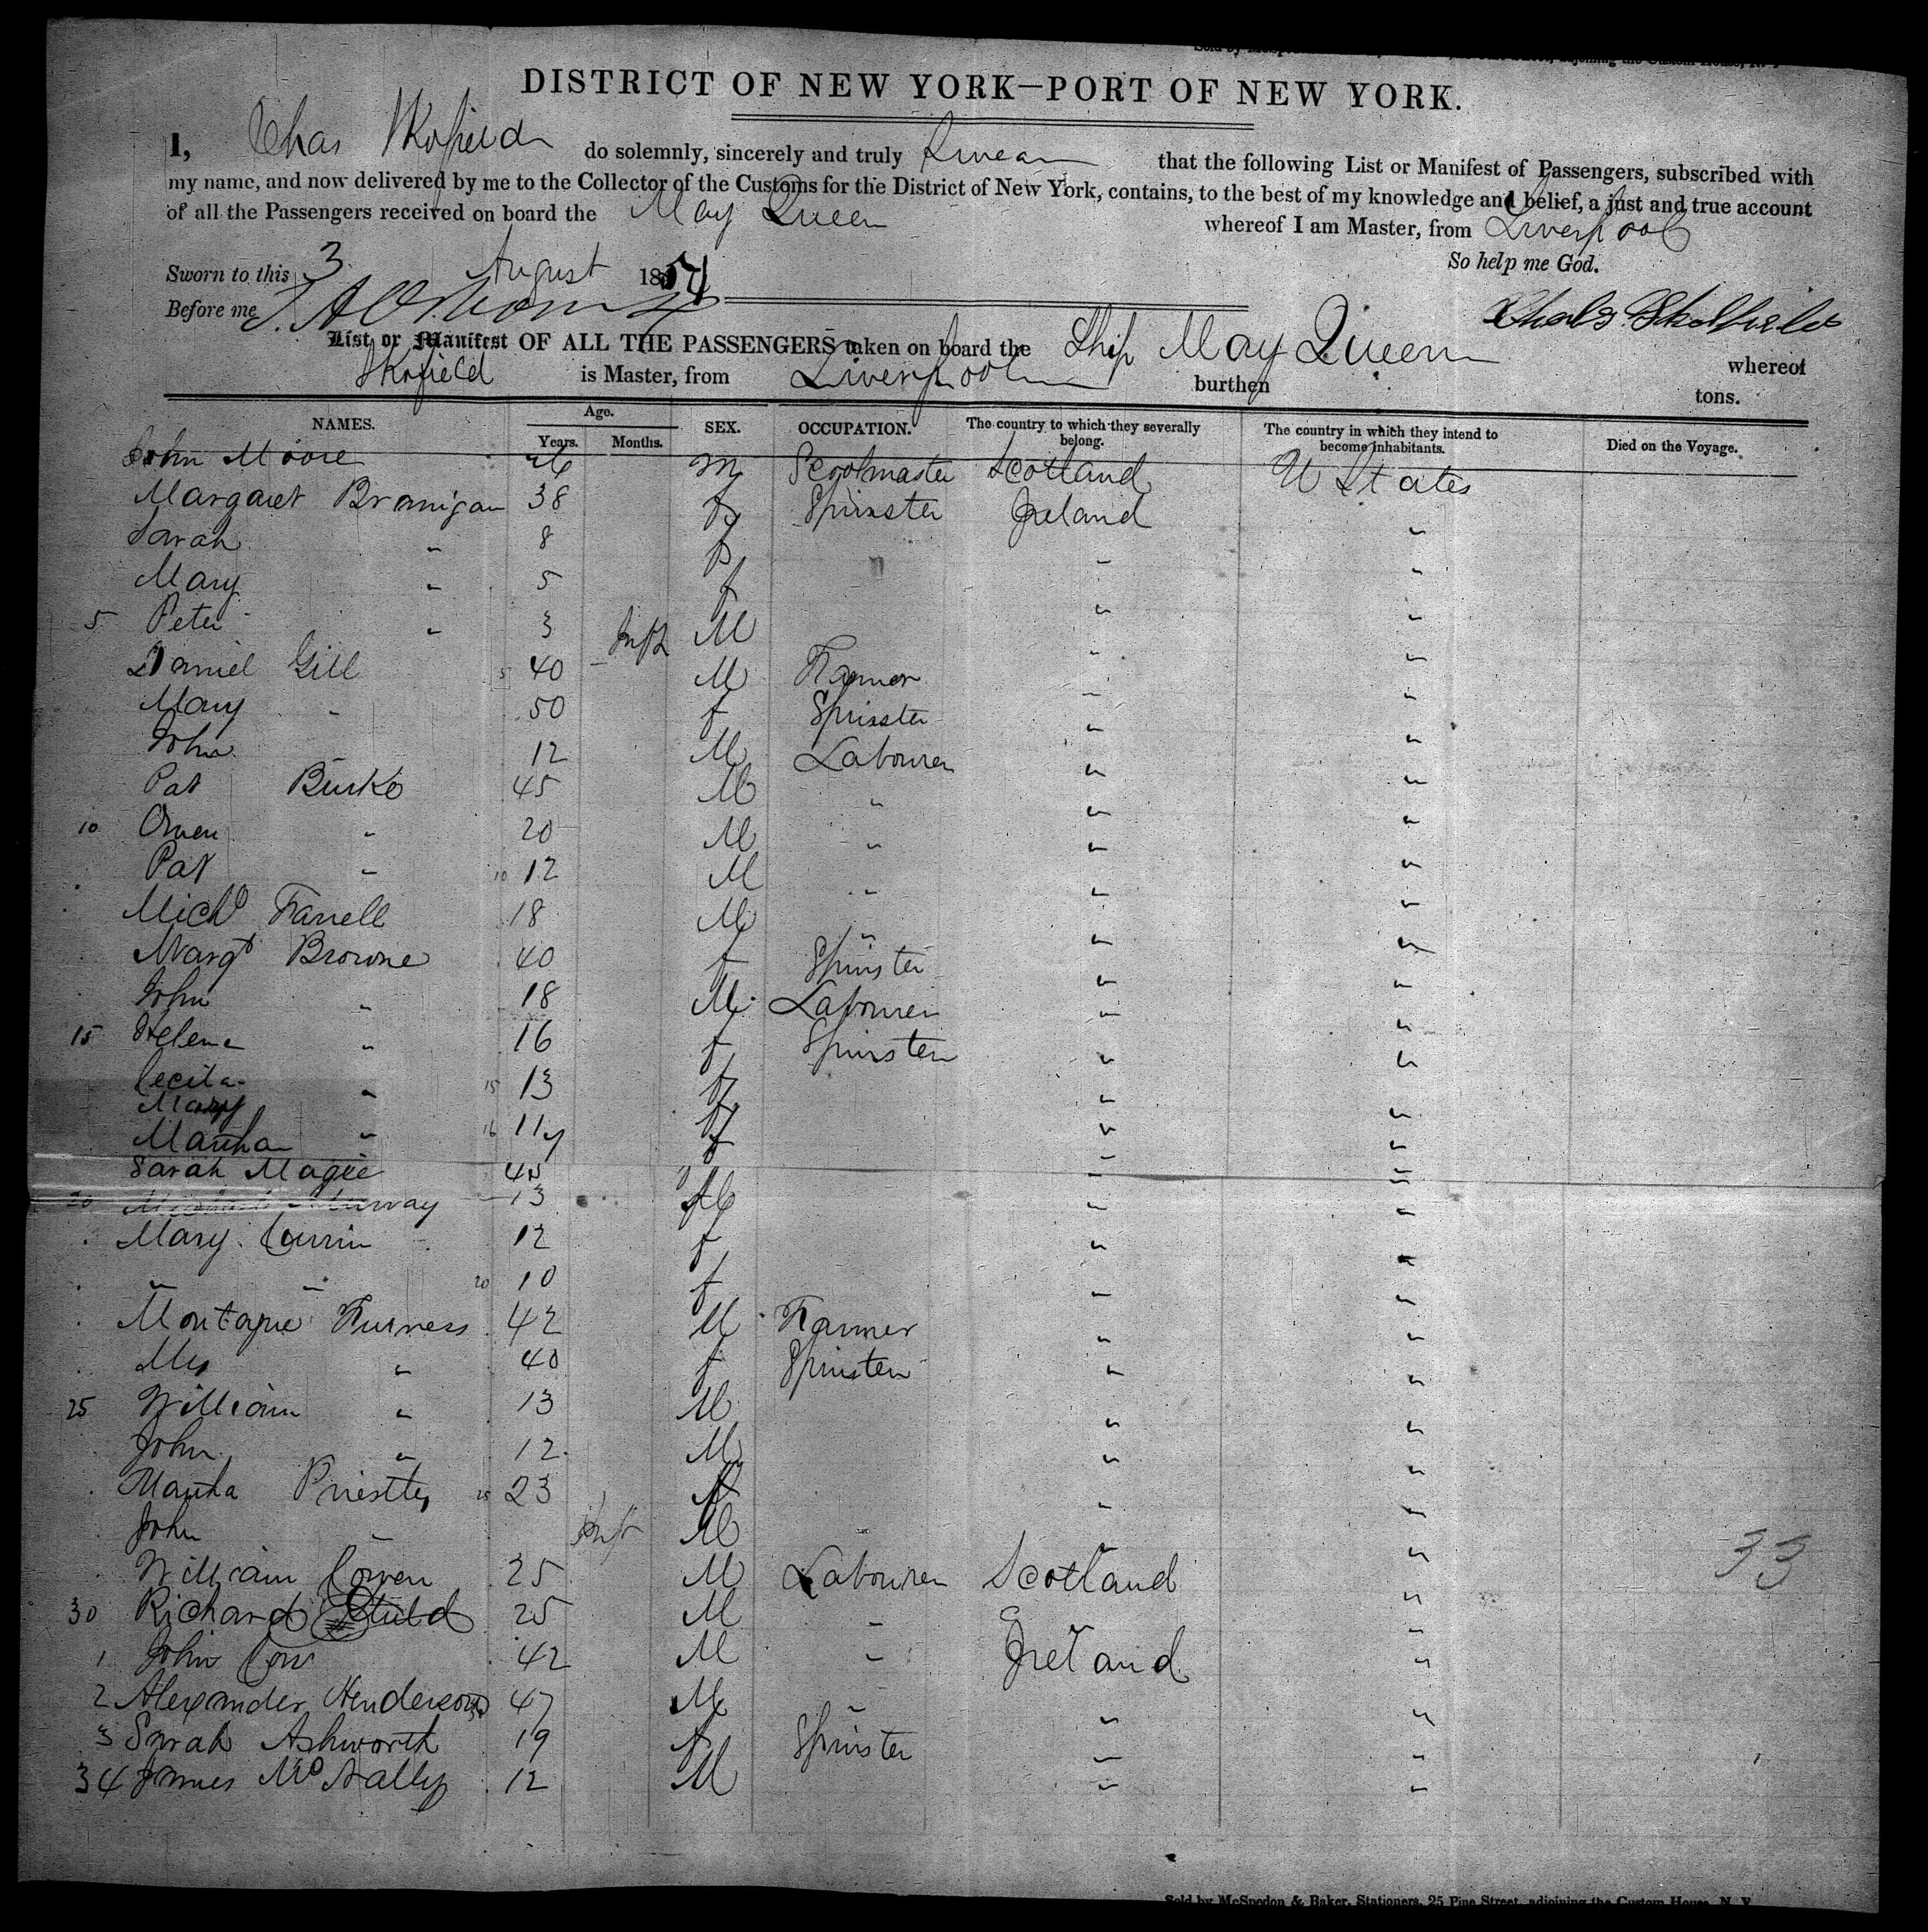 DISTRICT OF NEW YORK—PORT OF NEW YORK.
I, Chas Skofield do solemnly, sincerely and truly Swear that the following List or Manifest of Passengers, subscribed with
my name, and now delivered by me to the Collector of the Customs for the District of New York, contains, to the best of my knowledge and belief, a just and true account
of all the Passengers received on board the May Queen whereof I am Master, from Liverpool
So help me God.
Sworn to this 3 August 1854
Before me
List or Manifest OF ALL THE PASSENGERS taken on board the Ship May Queen whereof
Skofield is Master, from Liverpool burthen tons.
NAMES. Age. Years. Months. SEX. OCCUPATION. The country to which they severally belong. The country in which they intend to become inhabitants. Died on the Voyage.
John Moore 26 M Scoolmaster Scotland U States
Margaret Brannigan 38 f Spinster Ireland "
Sarah " 8 f " " "
Mary " 5 f " "
5 Peter " 3 Inft M " "
Daniel Gill 5 40 M Farmer " "
Mary " 50 f Spinster " "
John 12 M Labourer " "
Pat Burke 45 M " " "
10 Owen " 20 M " " "
Pat " 10 12 M " " "
Michl Farrell 18 M " " "
Margt Browne 40 f Spinster " "
John " 18 M Labourer " "
15 Helena " 16 f Spinster " "
Cecila " 15 13 f " "
Mary
Martha " 16 11 f " "
Sarah Magee 45 f " "
20 Murray 13 M " "
Mary Currin 12 f " "
" " 20 10 f " "
Montague Furness 42 M Farmer " "
Mrs " 40 f Spinster " "
25 William " 13 M " "
John " 12 M " "
Martha Priestly 25 23 f " "
John " Inft M " "
33
William Cowen 25 M Labourer Scotland "
30 Richard 25 M " "
1 John Cow 42 M " Ireland "
2 Alexander Henderson 47 M " " "
3 Sarah Ashworth 19 f Spinster " "
34 James McNally 12 M " "
Sold by McSpedon & Baker, Stationers, 25 Pine Street, adjoining the Custom House, N. Y.